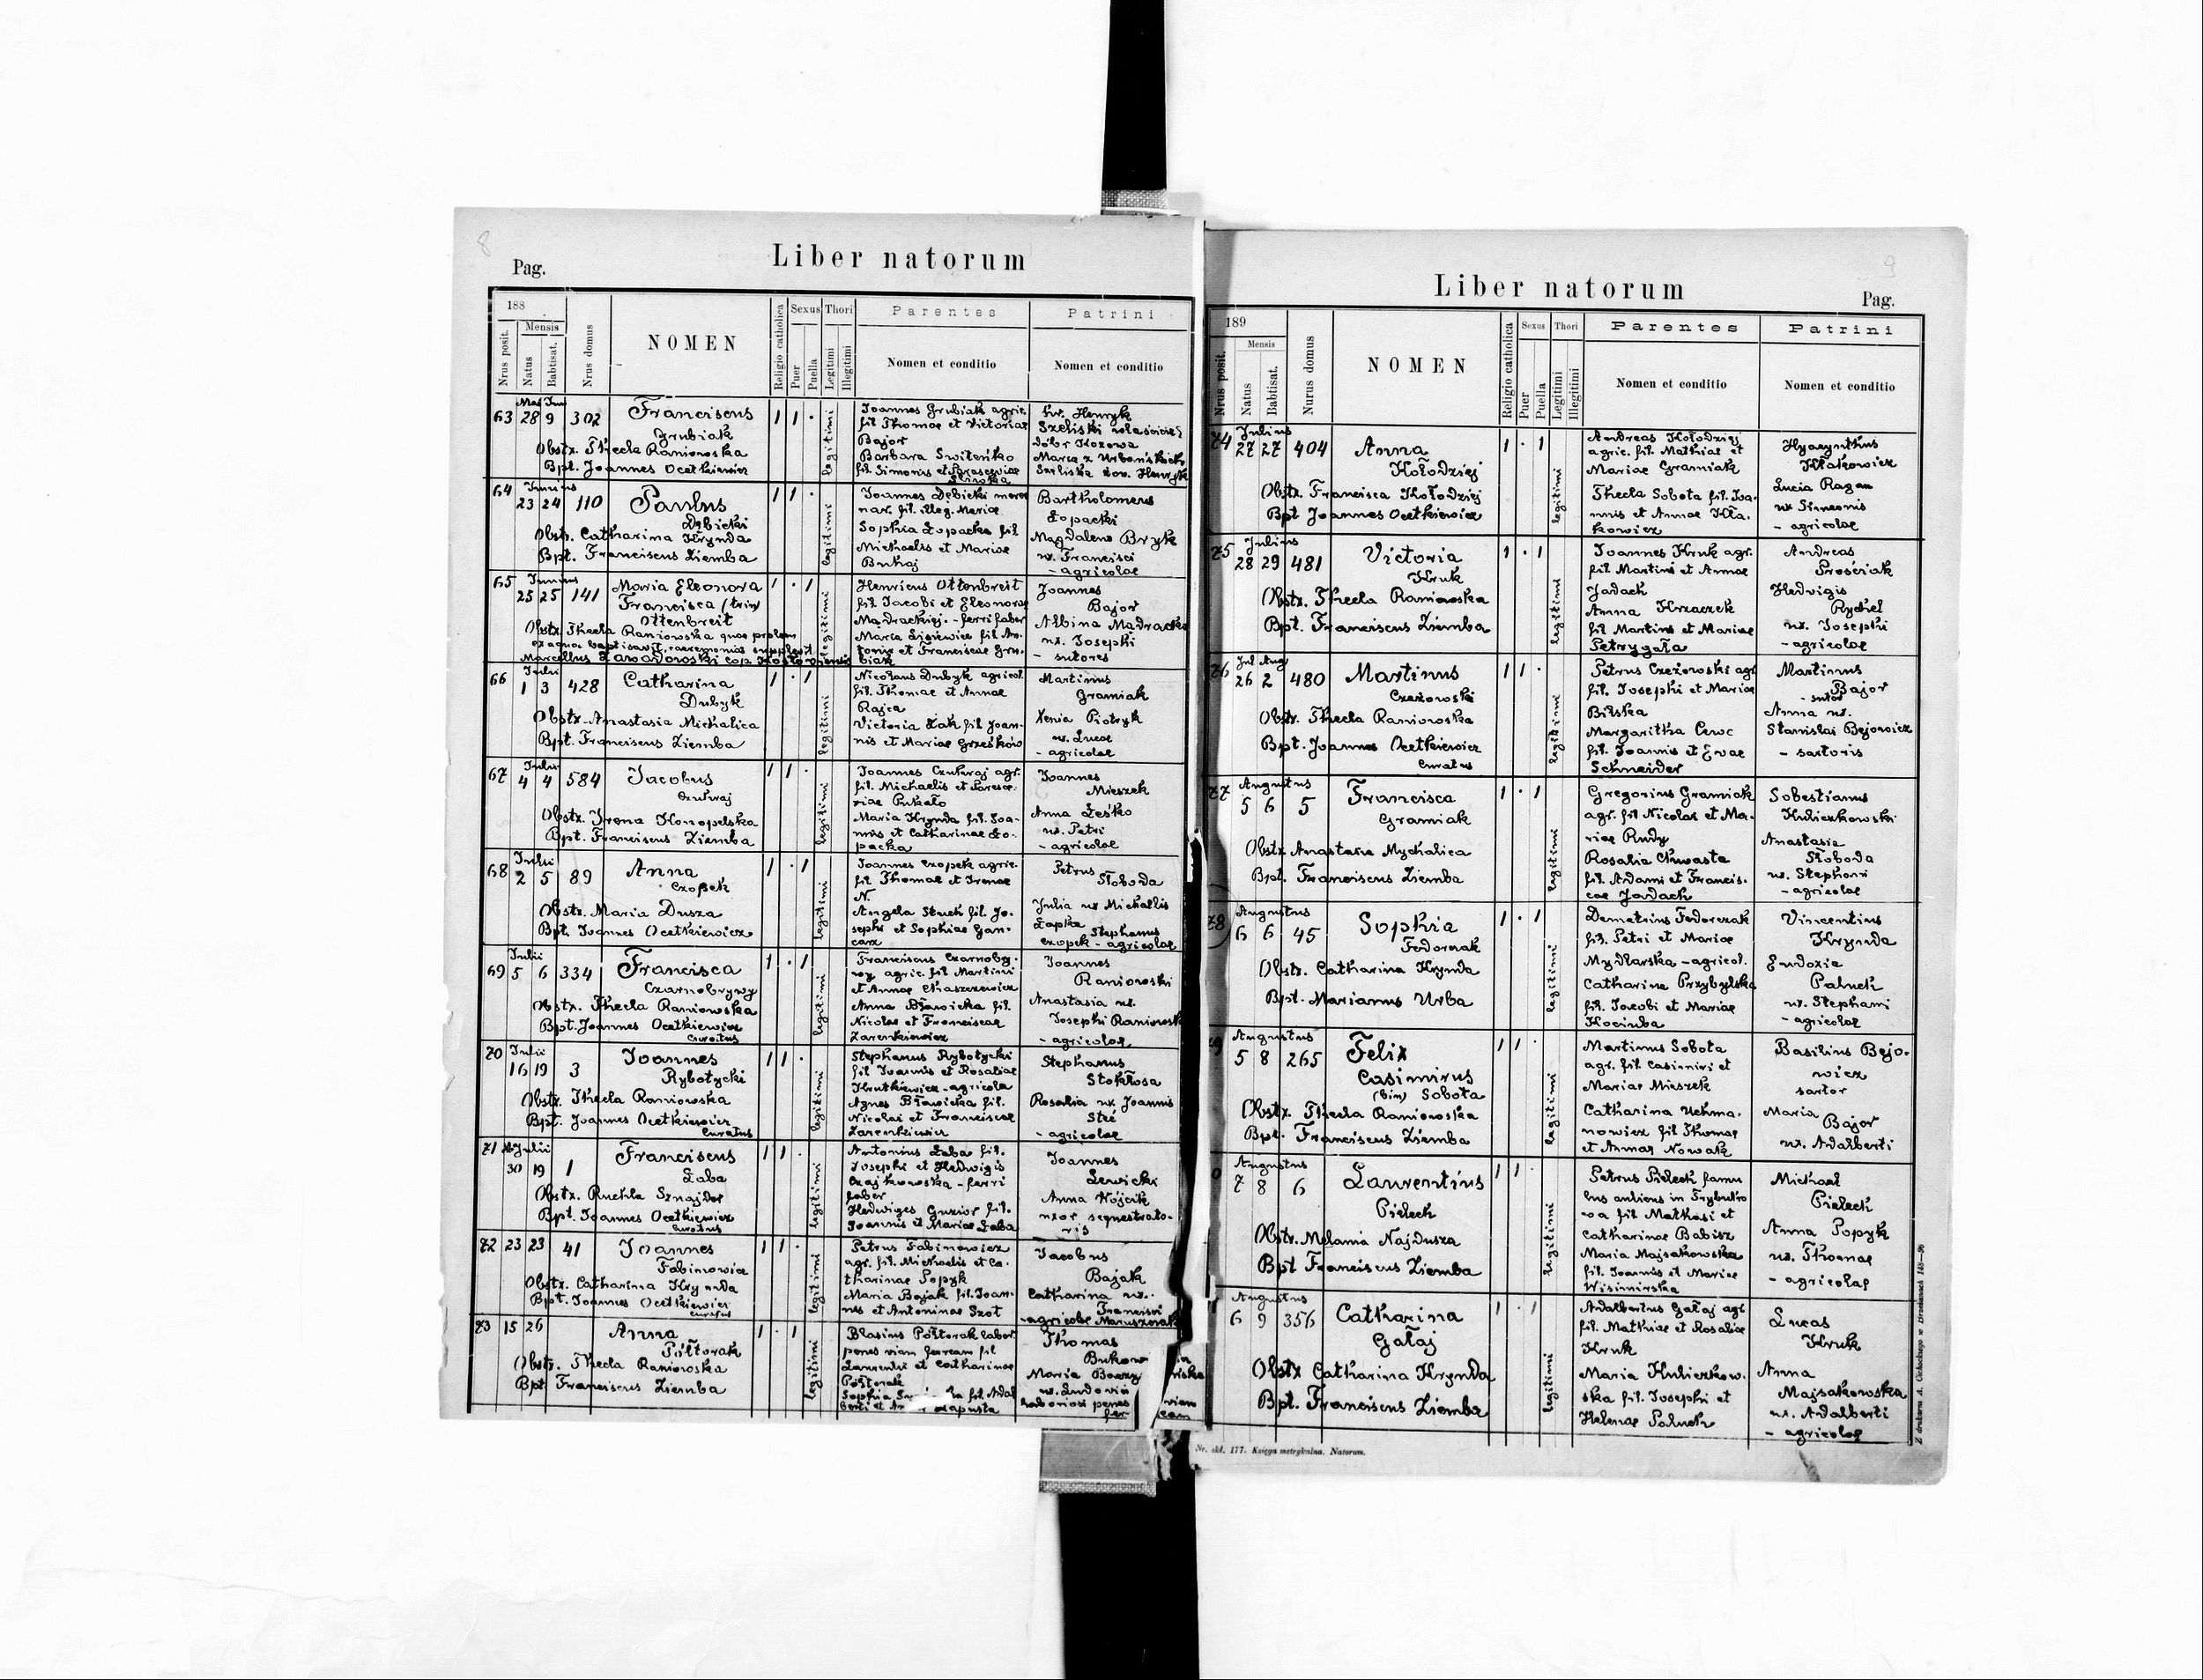 8
Pag.
Liber natorum
188
Nrus posit.
Mensis
Natus
Babtisat.
Nrus domus
NOMEN
Religio catholica
Sexus
Puer
Puella
Thori
Legitimi
Illegitimi
Parentes
Nomen et conditio
Patrini
Nomen et conditio
63 28 9 302 Franciscus 1 1 · legitimi
Grubiak
Obstx. Thecla Raniowska
Bpt. Joannes Ocetkiewicz
Joannes Grubiak agric.
fil Thomae et Victoriae
Bajor
Barbara Switeńko
fil. Simonis et Parasceviae
hr. Henryk
Szeliski właściciel
dóbr Kozowa
Maria z Urbańskich
Szeliska żon. Henryka
64 Junius
23 24 110 Paulus 1 1 · legitimi
Dębicki
Obstx. Catharina Krynda
Bpt. Franciscus Ziemba
Joannes Dębicki merce
nar. fil. illeg. Mariae
Sophia Łopacka fil
Michaelis et Mariae
Buhaj
Bartholomeus
Łopacki
Magdalena Bryk
ux. Francisci
- agricolae
65 Junius
25 25 141 Maria Eleonora 1 · 1 legitimi
Francisca (trin)
Ottenbreit
Obstx. Thecla Raniowska quae prolem
ex aqua baptisavit, caeremonias supplevit
Marcellus Zawadowski cop. Kozłoviensis
Henricus Ottenbreit
fil. Jacobi et Eleonorae
Mądrackiej. - ferri faber
Maria Lisiewicz fil. An-
tonii et Franciscae Gru-
biak
Joannes
Bajor
Albina Madracka
ux. Josephi
- sutores
66 Julii
1 3 428 Catharina 1 · 1 legitimi
Dubyk
Obstx. Anastasia Michalica
Bpt. Franciscus Ziemba
Nicolaus Dubyk agricol
fil. Thomae et Annae
Rajca
Victoria Żak fil Joan-
nis et Mariae Grześków
Martinus
Gramiak
Xenia Piotryk
ux. Lucae
- agricolae
67 Julii
4 4 584 Jacobus 1 1 · legitimi
Czuwaj
Obstx. Irena Konopelska
Bpt. Franciscus Ziemba
Joannes Czuwaj agr.
fil. Michaelis et Parasce-
viae Pukało
Maria Krynda fil. Joa-
nnis et Catharinae Ło-
packa
Joannes
Mieszek
Anna Leśko
ux. Petri
- agricolae
68 Julii
2 5 89 Anna 1 · 1 legitimi
Czopek
Obstx. Maria Dusza
Bpt. Joannes Ocetkiewicz
Joannes Czopek agric.
fil Thomae et Irenae
N.
Angela Stuch fil. Jo-
sephi et Sophiae Gan-
carz
Petrus
Słoboda
Julia ux Michaelis
Łapka Stephanus
czopek - agricolae
69 Julii
5 6 334 Francisca 1 · 1 legitimi
Czarnobrywy
Obstx. Thecla Raniowska
Bpt. Joannes Ocetkiewicz
curatus
Franciscus Czarnobry-
wy agric. fil Martini
et Annae Chaszczewicz
Anna Bławicka fil.
Nicolai et Franciscae
Zarenkiewicz
Joannes
Raniowski
Anastasia ux.
Josephi Raniowski
- agricolae
70 Julii
16 19 3 Joannes 1 1 · legitimi
Rybotycki
Obstx. Thecla Raniowska
Bpt. Joannes Ocetkiewicz
curatus
Stephanus Rybotycki
fil Joannis et Rosaliae
Hrutkiewicz - agricola
Agnes Bławicka fil.
Nicolai et Franciscae
Zarenkiewicz
Stephanus
Stokłosa
Rosalia ux Joannis
Steć
- agricolae
71 Julii
30 19 1 Franciscus 1 1 · legitimi
Łaba
Obstx. Ruchla Sznajder
Bpt. Joannes Ocetkiewicz
curatus
Antonius Łaba fil.
Josephi et Hedwigis
Czajkowska - ferri
faber
Hedwiges Guzior fil.
Joannis et Mariae Łaba
Joannes
Lewicki
Anna Wójcik
uxor sequestrato-
ris
72 23 23 41 Joannes 1 1 · legitimi
Fabinowicz
Obstx. Catharina Krynda
Bpt. Joannes Ocetkiewicz
curatus
Petrus Fabinowicz
agr. fil. Michaelis et Ca-
tharinae Popyk
Maria Bajak fil. Joan-
nis et Antoninae Szot
Jacobus
Bajak
Catharina ux.
Francisci
- agricolae Maruszczak
73 15 26 Anna 1 · 1 legitimi
Półtorak
Obstx. Thecla Raniowska
Bpt. Franciscus Ziemba
Blasius Półtorak labor.
penes viam ferream fil
Laurentii et Catharinae
Półtorak
Sophia fil. Adal
berti et Kapusta
Thomas
Maria
ux. Ludovici
laboriosi penes
viam
9
Liber natorum
Pag.
189
Nrus posit.
Mensis
Natus
Babtisat.
Nurus domus
NOMEN
Religio catholica
Sexus
Puer
Puella
Thori
Legitimi
Illegitimi
Parentes
Nomen et conditio
Patrini
Nomen et conditio
74 Julius
27 27 404 Anna 1 · 1 legitimi
Kołodziej
Obstx. Francisca Kołodziej
Bpt Joannes Ocetkiewicz
Andreas Kołodziej
agric. fil. Mathiae et
Mariae Gramiak
Thecla Sobota fil. Joa-
nnis et Annae Kła-
kowicz
Hyacynthus
Kłakowicz
Lucia Ragan
ux Simeonis
- agricolae
75 Julius
28 29 481 Victoria 1 · 1 legitimi
Kruk
Obstx. Thecla Raniowska
Bpt. Franciscus Ziemba
Joannes Kruk agr.
fil Martini et Annae
Jadach
Anna Krzaczek
fil Martini et Mariae
Petryga̍ła
Andreas
Prościak
Hedvigis
Rychel
ux. Josephi
- agricolae
76 Jul Aug
26 2 480 Martinus 1 1 · legitimi
Czeżowski
Obstx. Thecla Raniowska
Bpt. Joannes Ocetkiewicz
curatus
Petrus Czeżowski agr
fil. Josephi et Mariae
Bilska
Margaritha Cewc
fil. Joannis et Evae
Schneider
Martinus
Bajor
- sutor
Anna ux.
Stanislai Bejowicz
- sartoris
77 Augustus
5 6 5 Francisca 1 · 1 legitimi
Gramiak
Obstx. Anastasia Mychalica
Bpt. Franciscus Ziemba
Gregorius Gramiak
agr. fil Nicolai et Ma-
riae Rudy
Rosalia Chwasta
fil. Adami et Francis-
cae Jadach
Sebastianus
Kuliczkowski
Anastasia
Słoboda
ux. Stephani
- agricolae
78 Augustus
6 6 45 Sophia 1 · 1 legitimi
Fedorczak
Obstx. Catharina Krynda
Bpt. Marianus Urba
Demetrius Fedorczak
fil. Petri et Mariae
Mydlarska - agricol.
Catharina Przybylska
fil. Jacobi et Mariae
Kocimba
Vincentius
Krynda
Eudoxia
Paluch
ux. Stephani
- agricolae
9 Augustus
5 8 265 Felix 1 1 · legitimi
Casimirus
(bin) Sobota
Obstx. Thecla Raniowska
Bpt. Franciscus Ziemba
Martinus Sobota
agr. fil. Casimiri et
Mariae Mieszek
Catharina Uchma-
nowicz fil Thomae
et Annae Nowak
Basilius Bejo-
wicz
sartor
Maria
Bajor
ux. Adalberti
0 Augustus
7 8 6 Laurentius 1 1 · legitimi
Pielech
Obstx. Melania Najdusza
Bpt Franciscus Ziemba
Petrus Pielech famu
lus in
fil Mathaei et
Catharinae Babisz
Maria Majsakowska
fil. Joannis et Mariae
Wisimirska
Michael
Pielech
Anna Popyk
ux. Thomae
- agricolae
Augustus
6 9 356 Catharina 1 · 1 legitimi
Gałaj
Obstx Catharina Krynda
Bpt. Franciscus Ziemba
Adalbertus Gałaj agr
fil. Mathiae et Rosaliae
Kruk
Maria Kuliczkow-
ska fil. Josephi et
Helenae Paluch
Lucas
Kruk
Anna
Majsakowska
ux. Adalberti
- agricolae
Nr. skł. 177. Księga metrykalna. Natorum.